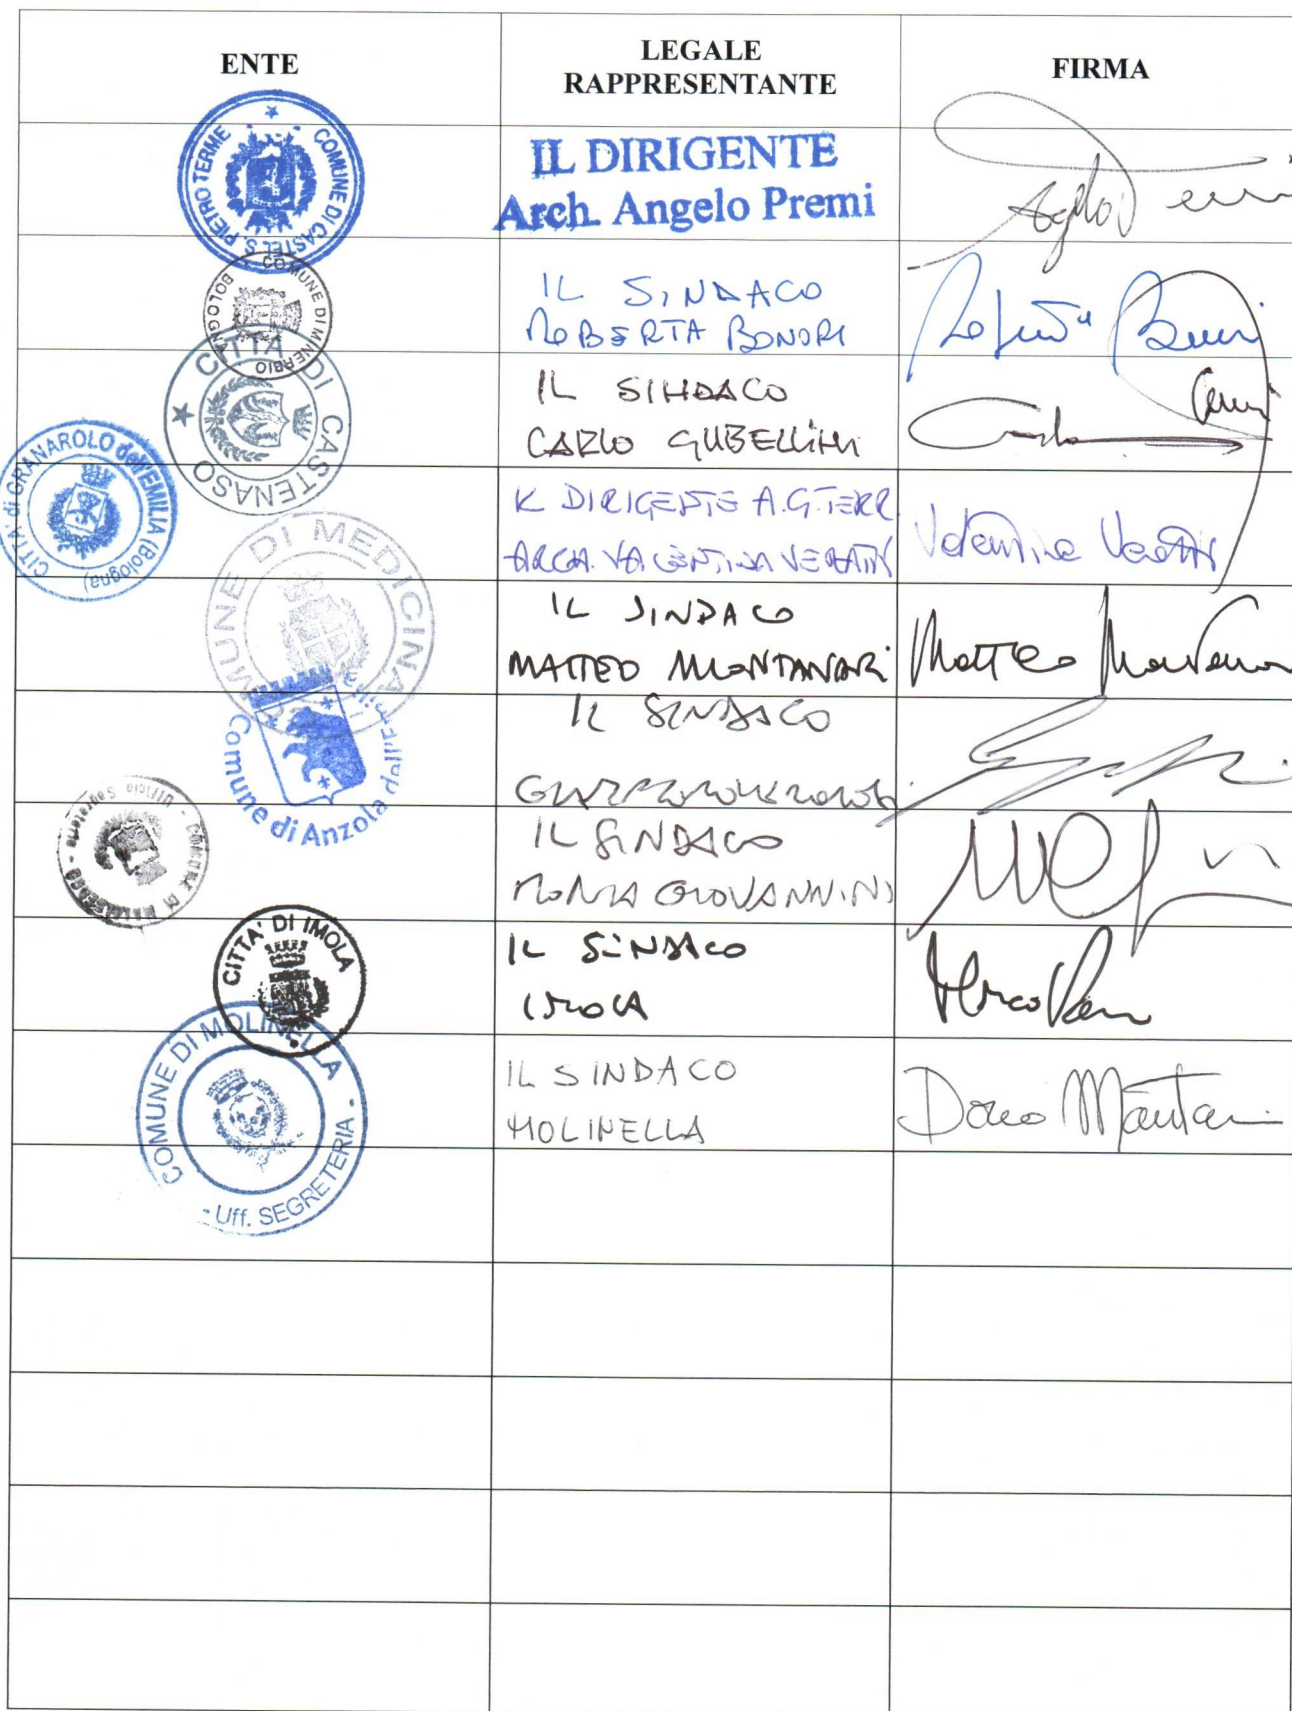 ENTE
LEGALE
RAPPRESENTANTE
FIRMA
COMUNE DI CASTEL S. PIETRO TERME
IL DIRIGENTE
Arch. Angelo Premi
COMUNE DI MINERBIO
BOLOGNA
IL SINDACO
ROBERTA BONORI
CITTÀ DI CASTENASO
IL SINDACO
CARLO GUBELLINI
CITTA' di GRANAROLO dell'EMILIA (Bologna)
IL DIRIGENTE A.G.TERR
ARCH. VALENTINA VERATTI
Valentina Veratti
COMUNE DI MEDICINA
IL SINDACO
MATTEO MONTANARI
Matteo Montanari
Comune di Anzola dell'Emilia
IL SINDACO
Ufficio Segreteria - COMUNE DI
IL SINDACO
MONIA GIOVANNINI
CITTA' DI IMOLA
IL SINDACO
IMOLA
COMUNE DI MOLINELLA
- Uff. SEGRETERIA -
IL SINDACO
MOLINELLA
Dario Mantovani